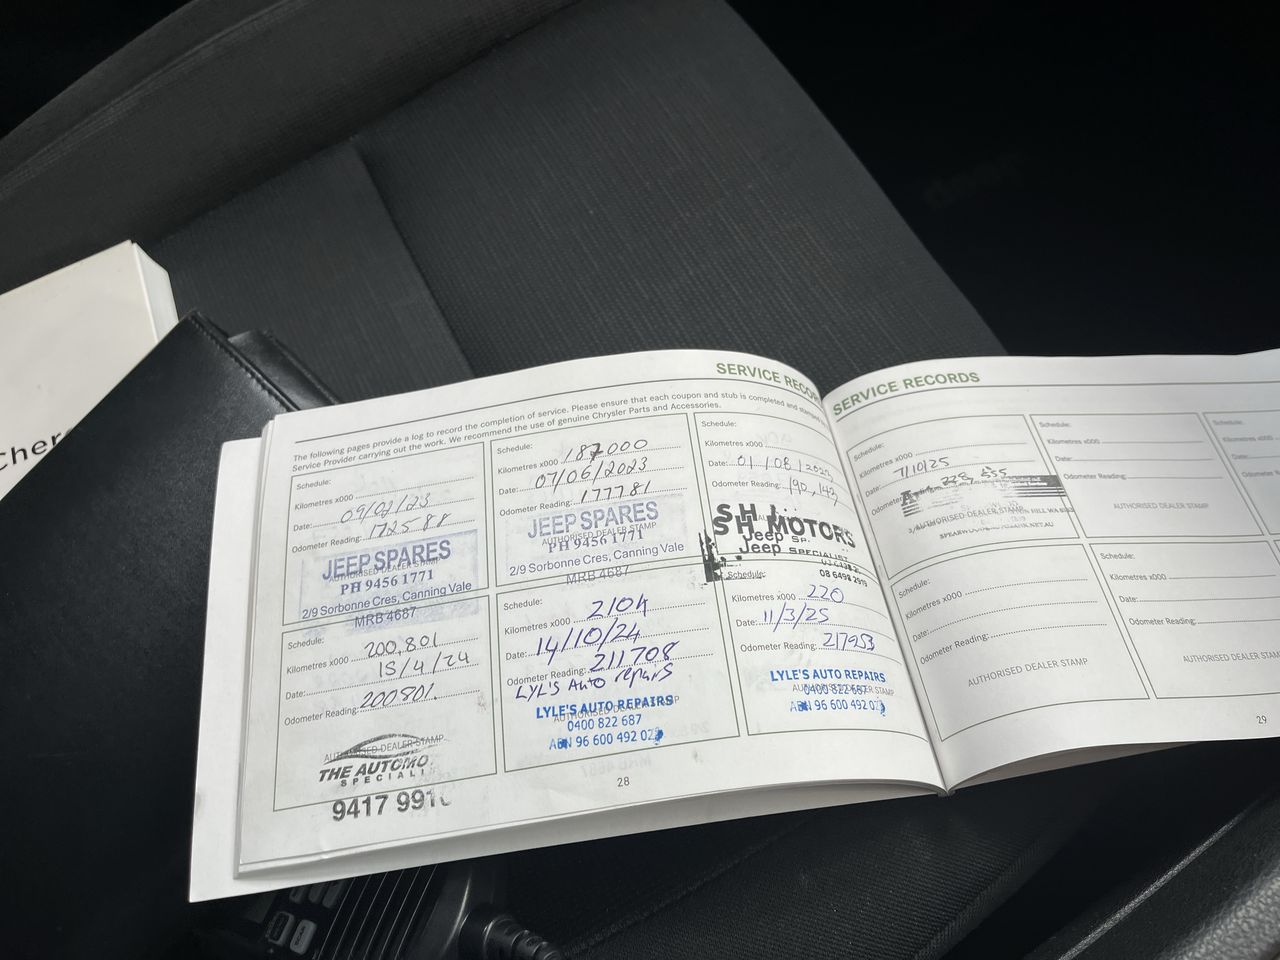 Cher
SERVICE RECOR
The following pages provide a log to record the completion of service. Please ensure that each coupon and stub is completed and
Service Provider carrying out the work. We recommend the use of genuine Chrysler Parts and Accessories.
Schedule:
Kilometres x000
Date: 09/02/23
Odometer Reading: 172588
JEEP SPARES
AUTHORISED DEALER STAMP
PH 9456 1771
2/9 Sorbonne Cres, Canning Vale
MRB 4687
Schedule:
Kilometres x000 187000
Date: 07/06/2023
Odometer Reading: 177781
JEEP SPARES
AUTHORISED DEALER STAMP
PH 9456 1771
2/9 Sorbonne Cres, Canning Vale
MRB 4687
Schedule:
Kilometres x000
Date: 01/08/2023
Odometer Reading: 190,143
SH MOTORS
Jeep SPECIALIST
08 6498 2919
Schedule:
Kilometres x000 200,801
Date: 15/4/24
Odometer Reading: 200801.
AUTHORISED DEALER STAMP
THE AUTOMO
SPECIALI
9417 991
Schedule:
Kilometres x000 210k
Date: 14/10/24
Odometer Reading: 211708
LYL'S Auto repairs
LYLE'S AUTO REPAIRS
AUTHORISED DEALER STAMP
0400 822 687
ABN 96 600 492 02
Schedule:
Kilometres x000 220
Date: 11/3/25
Odometer Reading: 217953
LYLE'S AUTO REPAIRS
AUTHORISED DEALER STAMP
0400 822 687
ABN 96 600 492 02
28
SERVICE RECORDS
Schedule:
Kilometres x000
Date: 7/10/25
Odometer
AUTHORISED DEALER STAMP
Schedule:
Kilometres x000
Date:
Odometer Reading:
AUTHORISED DEALER STAMP
Schedule:
Kilometres x000
Date:
Odometer Reading:
AUTHORISED DEALER STAMP
Schedule:
Kilometres x000
Date:
Odometer Reading:
AUTHORISED DEALER STAMP
29